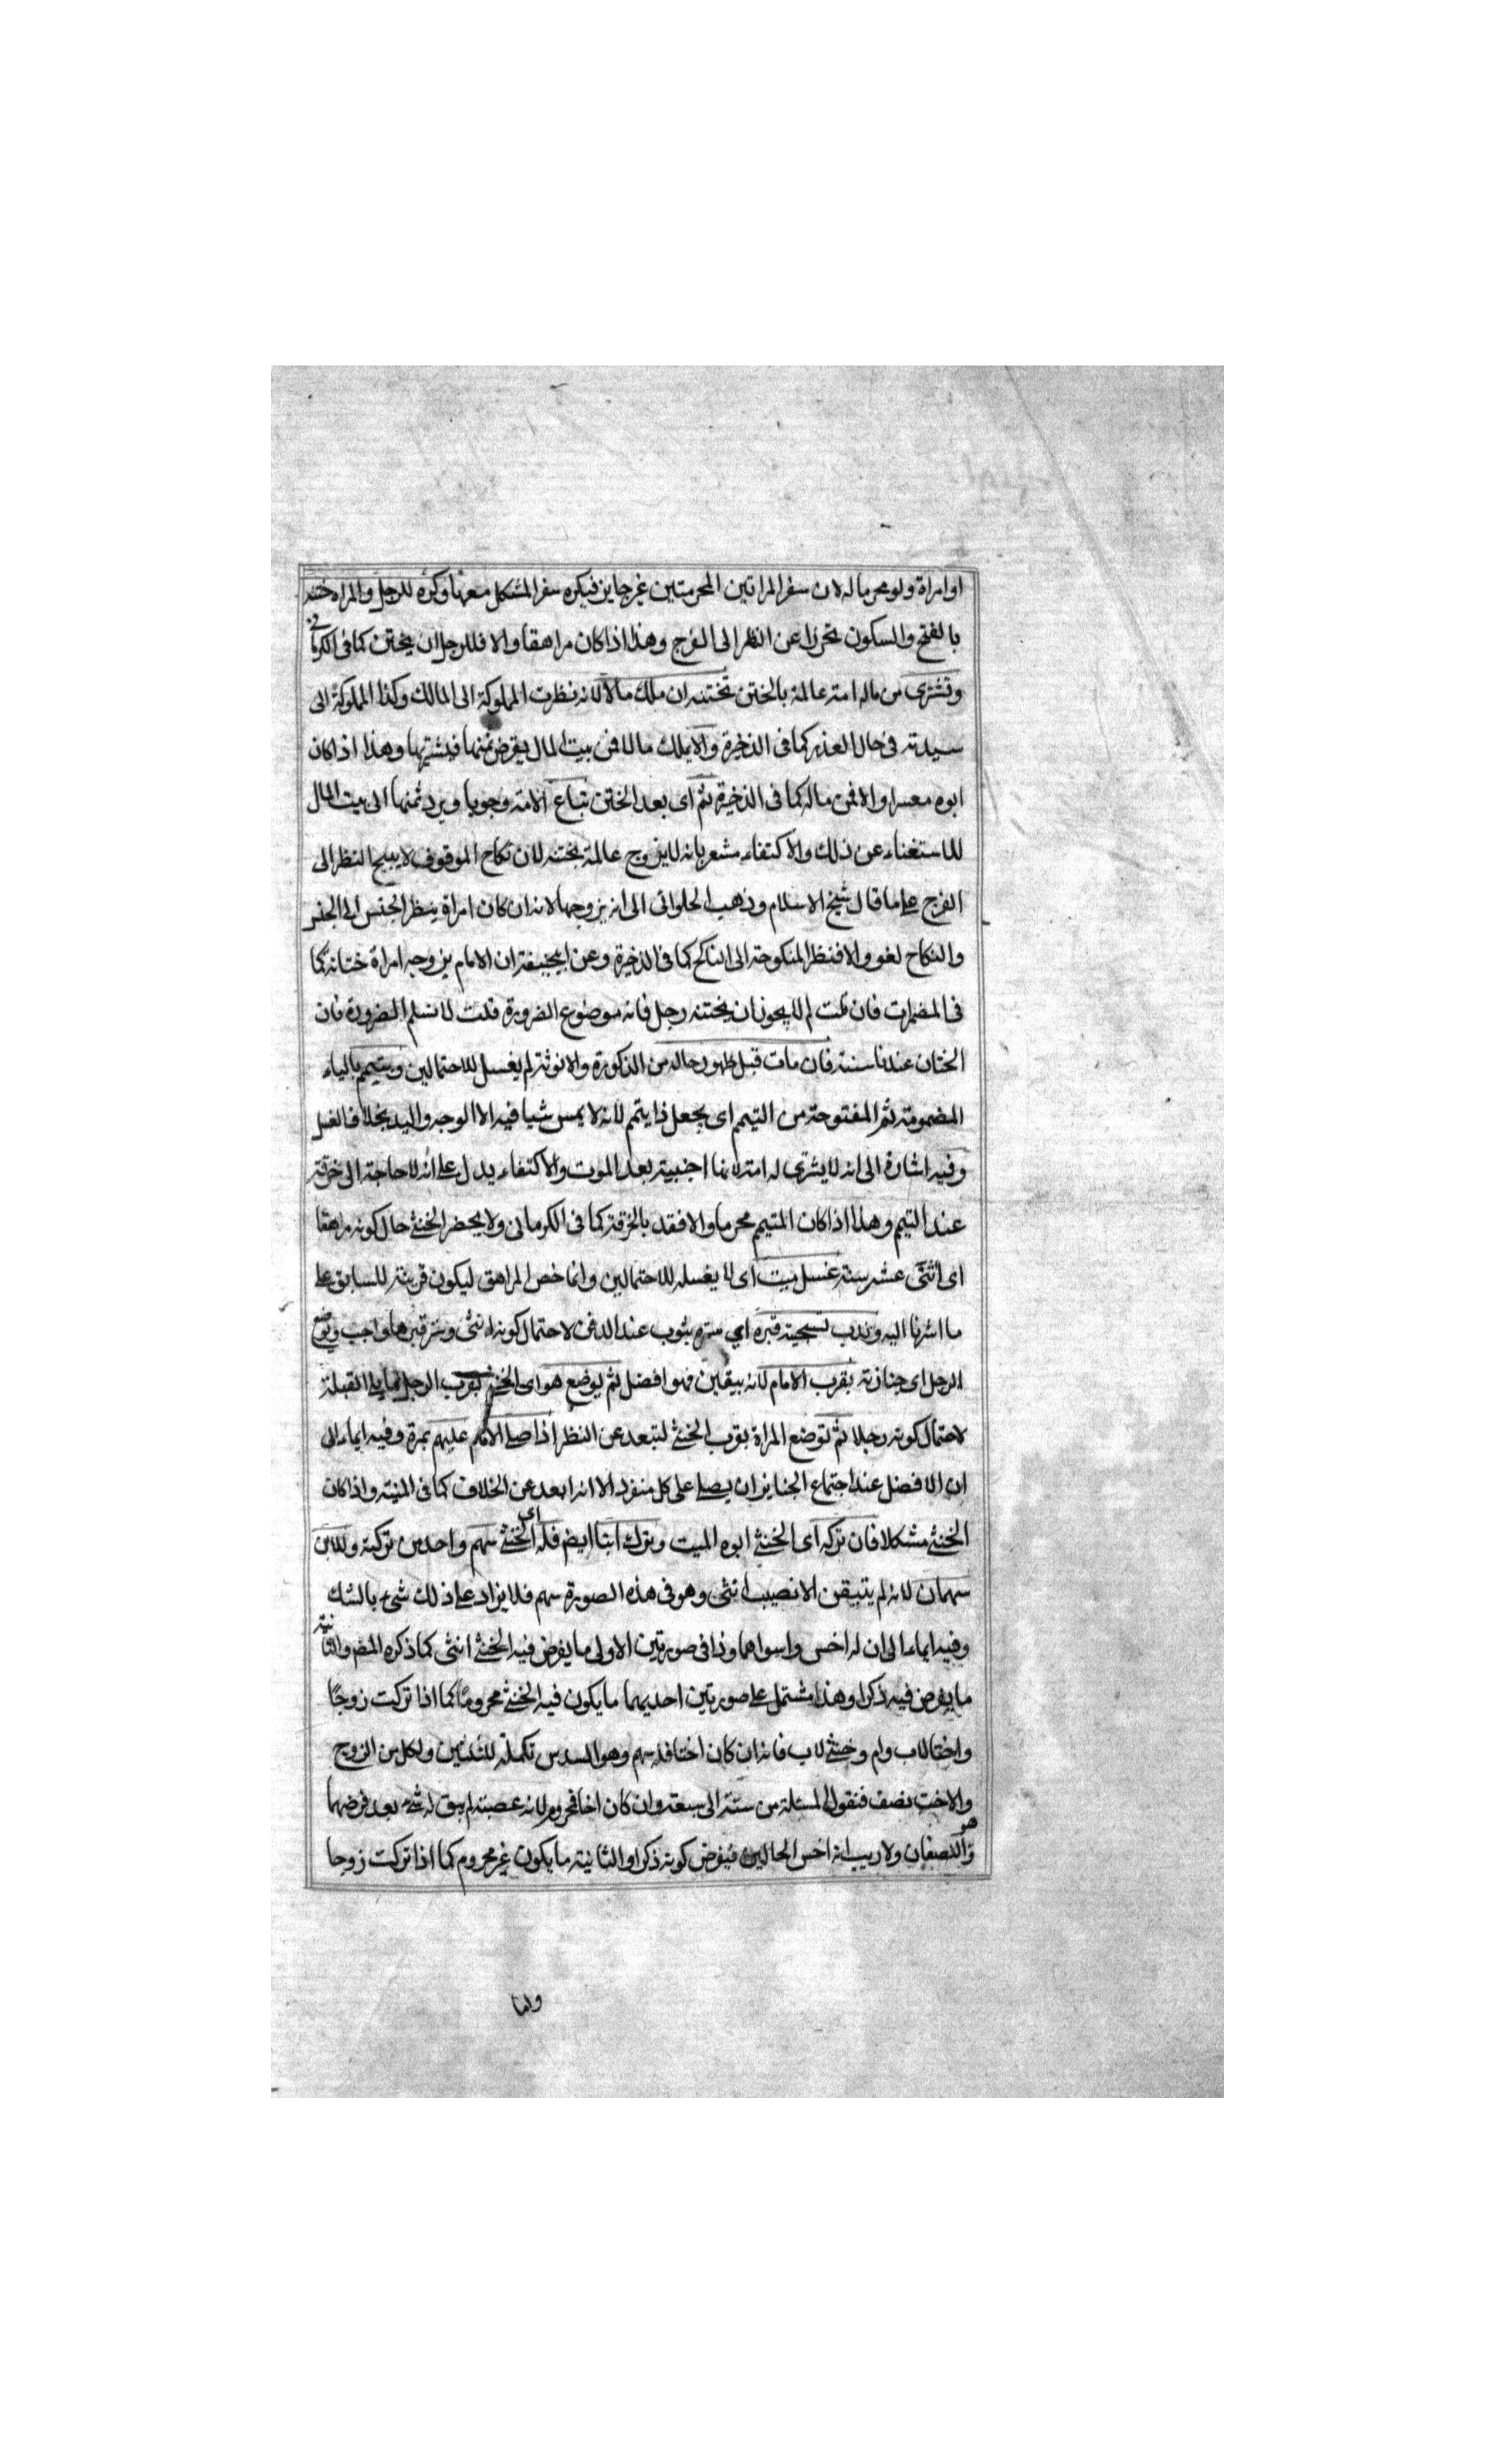 او امراة ولو محرما له لان سفر المراتين المحرمتين غير جايز فيكره سفر المشكل معها وكره للرجل والمراة ختنه
بالفتح والسكون تحرزا عن النظر الى الفرج وهذا اذا كان مراهقا والا فللرجل ان يختن كما فى الكرمانى
وتشترى من ماله امة عالمة بالختن تختنه ان ملك مالا لانه نظرت المملوكة الى المالك وكذا المملوكة الى
سيدته فى حال العذر كما فى الذخيرة والا يملك مالا فمن بيت المال يقرض ثمنها فيشتريها وهذا اذا كان
ابوه معسرا والا فمن ماله كما فى الذخيرة ثم اى بعد الختن تباع الامة وجوبا ويرد ثمنها الى بيت المال
للاستغناء عن ذلك والاكتفاء مشعر بانه لا يزوج عالمة بختنه لان نكاح الموقوف لا يبيح النظر الى
الفرج على ما قال شيخ الاسلام وذهب الحلوائى الى انه يزوجها لانه ان كان امراة ينظر الجنس الى الجنس
والنكاح لغو والا فنظر المنكوحة الى الناكح كما فى الذخيرة وعن ابيحنيفة ان الامام يزوجه امراة ختانة كما
فى المضمرات فان قلت لم لا يجوز ان يختنه رجل فانه موضوع الضرورة قلت لا نسلم الضرورة فان
الختان عندنا سنة فان مات قبل ظهور حاله من الذكورة والانوثة لم يغسل للاحتمالين وييمم بالياء
المضمومة ثم المفتوحة من التيمم اى يجعل ذا يتمم لانه لا يمس شيا فيه الا الوجه واليد بخلاف الغسل
وفيه اشارة الى انه لا يشترى له امة لانها اجنبية بعد الموت والاكتفاء يدل على انه لا حاجة الى خرقة
عند التيمم وهذا اذا كان المتيمم محرما والا فقد بالخرقة كما فى الكرمانى ولا يحضر الخنثى حال كونه مراهقا
اى اثنى عشر سنة غسل ميت اى لا يغسله للاحتمالين وانما خص المراهق ليكون قرينة للسابق على
ما اشرنا اليه وندب تسجية قبره اي ستره بثوب عند الدفن لاحتمال كونه انثى وستر قبرها واجب ويوضع
الرجل اى جنازته بقرب الامام لانه بيقين فهو افضل ثم يوضع هو اى الخنثى بقرب الرجل مما يلى القبلة
لاحتمال كونه رجلا ثم توضع المراة بقرب الخنثى لتبعد عن النظر اذا صلى الامام عليهم بمرة وفيه ايماء الى
ان الافضل عند اجتماع الجنايز ان يصلى على كل منفرد الا انه ابعد عن الخلاف كما فى المنية واذا كان
الخنثى مشكلا فان تركه اى الخنثى ابوه الميت وترك ابنا ايض فله اى الخنثى سهم واحد من تركته وللابن
سهمان لانه لم يتيقن الا نصيب انثى وهو فى هذه الصورة سهم فلا يزاد على ذلك شئ بالشك
وفيه ايماء الى ان له اخس واسواهما وذا فى صورتين الاولى ما يفرض فيه الخنثى انثى كما ذكره المص والثانية
ما يفرض فيه ذكرا وهذا مشتمل على صورتين احديهما ما يكون فيه الخنثى محروما كما اذا تركت زوجا
واختا لاب وام وخنثى لاب فانه ان كان اختا فله سهم وهو السدس تكملة للثلثين ولكل من الزوج
والاخت نصف فنقول المسئلة من ستة الى سبعة وان كان اخا فمحروم لانه عصبة لم يبق له شئ بعد فرضهما
وهو النصفان ولا ريب انه اخس الحالين فيفرض كونه ذكرا والثانية ما يكون غير محروم كما اذا تركت زوجا
واما